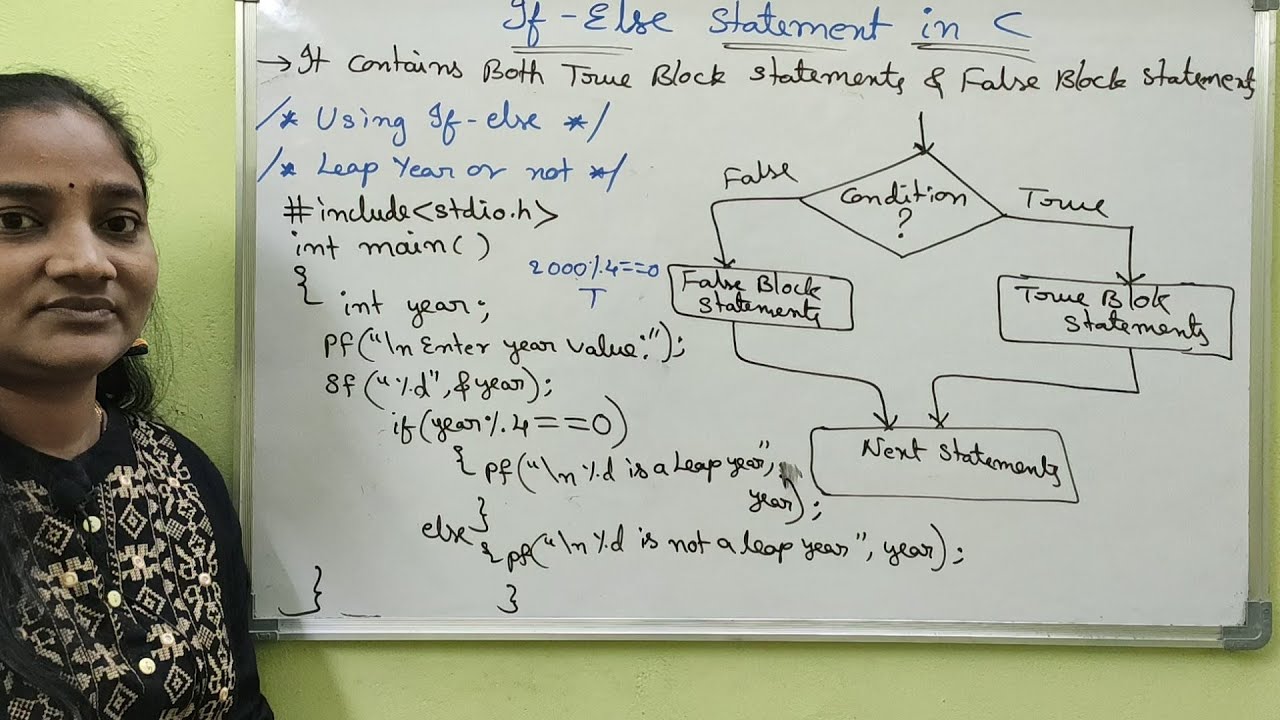 If-Else Statement in C
→ It contains Both True Block Statements & False Block Statement
/* Using If-else */
/* Leap Year or not */
#include<stdio.h>
int main()
{
int year;
pf("\n Enter year value:");
sf("%d", &year);
if(year%4==0)
{ pf("\n %d is a Leap year",
year);
}
else
{ pf("\n %d is not a leap year", year);
}
}
2000%4==0
T
Condition
?
False
True
False Block
Statements
True Blok
Statements
Next Statements